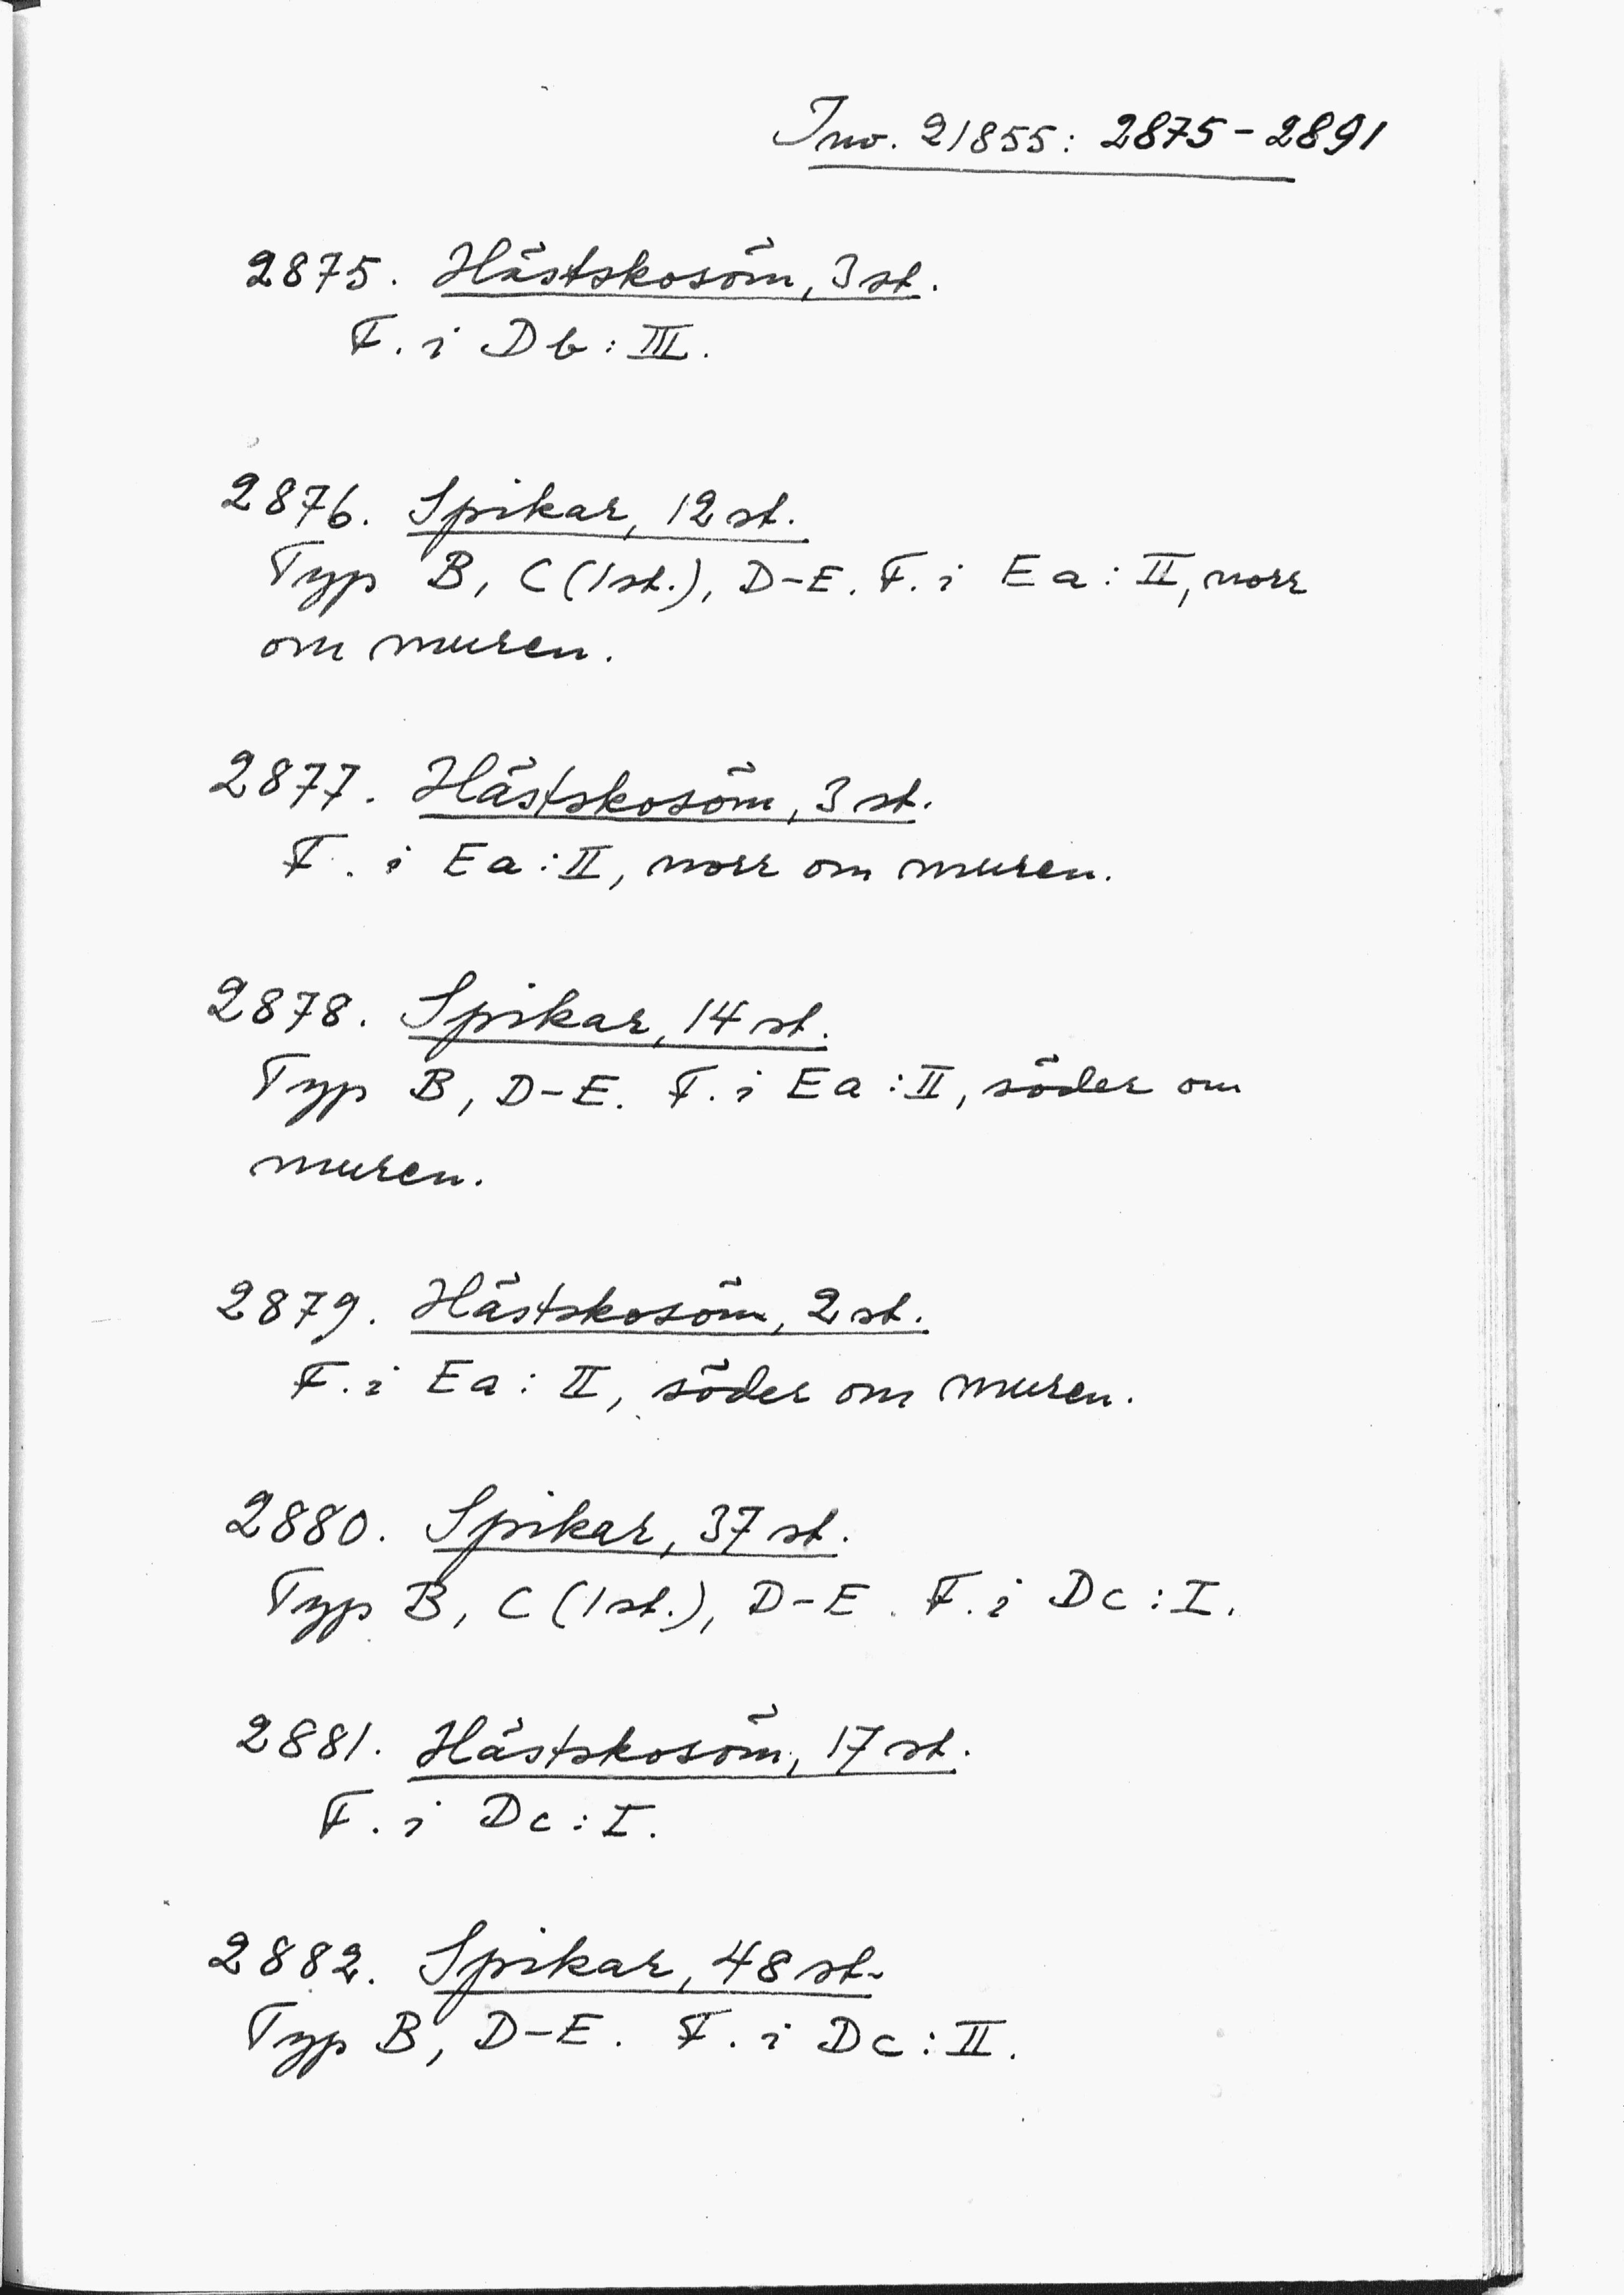 Inv. 21855: 2875-2891
2875. Hästskosöm, 3 st.
F. i Db: III.
2876. Spikar, 12 st.
Typ B, C (1 st.), D-E. F. i Ea: II, norr
om muren.
2877. Hästskosöm, 3 st.
F. i Ea: II, norr om muren.
2878. Spikar, 14 st.
Typ B, D-E. F. i Ea: II, söder om
muren.
2879. Hästskosöm, 2 st.
F. i Ea: II, söder om muren.
2880. Spikar, 37 st.
Typ B, C (1 st.), D-E. F. i Dc: I.
2881. Hästskosöm, 17 st.
F. i Dc: I.
2882. Spikar, 48 st.
Typ B, D-E. F. i Dc: II.